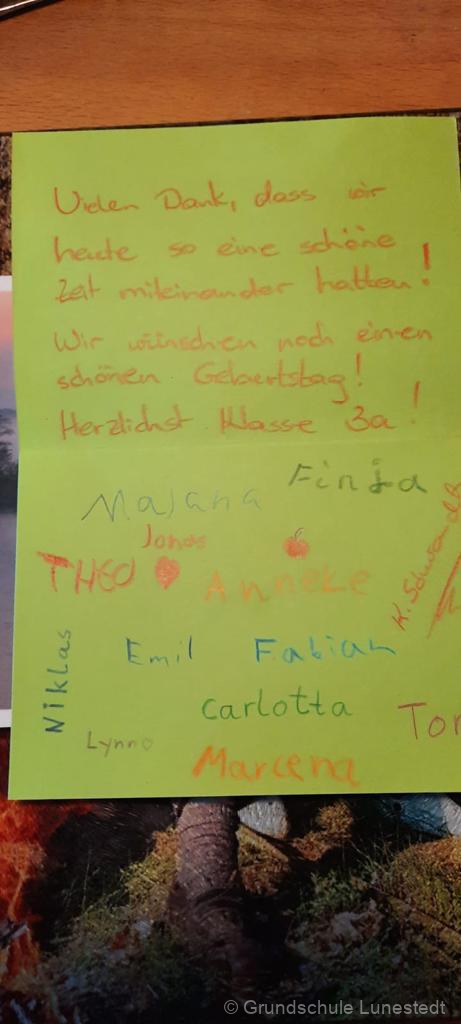 Vielen Dank, dass wir
heute so eine schöne
Zeit miteinander hatten!
Wir wünschen noch einen
schönen Geburtstag!
Herzlichst Klasse 3a!
Finja
Majana
Jonas
THEO
Anneke
Niklas
Emil
Fabian
Carlotta
Lynn
Marcena
© Grundschule Lunestedt